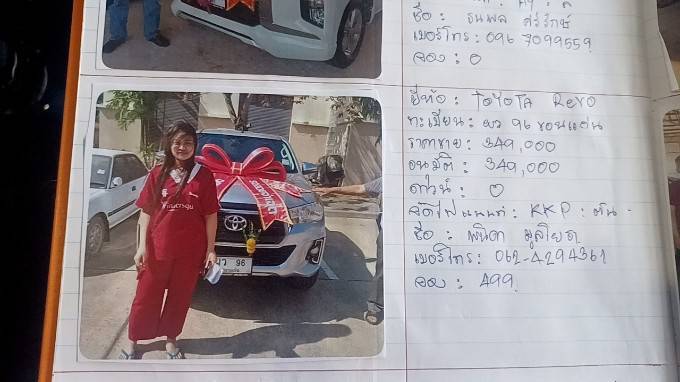 ชื่อ : ธนพล ศรีรักษ์
เบอร์โทร : 096 7099559
จอง : 0
ยี่ห้อ : TOYOTA Revo
ทะเบียน : ผว 96 ขอนแก่น
ราคาขาย : 349,000
อนุมัติ : 349,000
ดาวน์ : 0
จัดไฟแนนท์ : KKP : ต้น
ชื่อ : พนิดา มูลโยธา
เบอร์โทร : 062-4294361
จอง : 499
TOYOTA
96